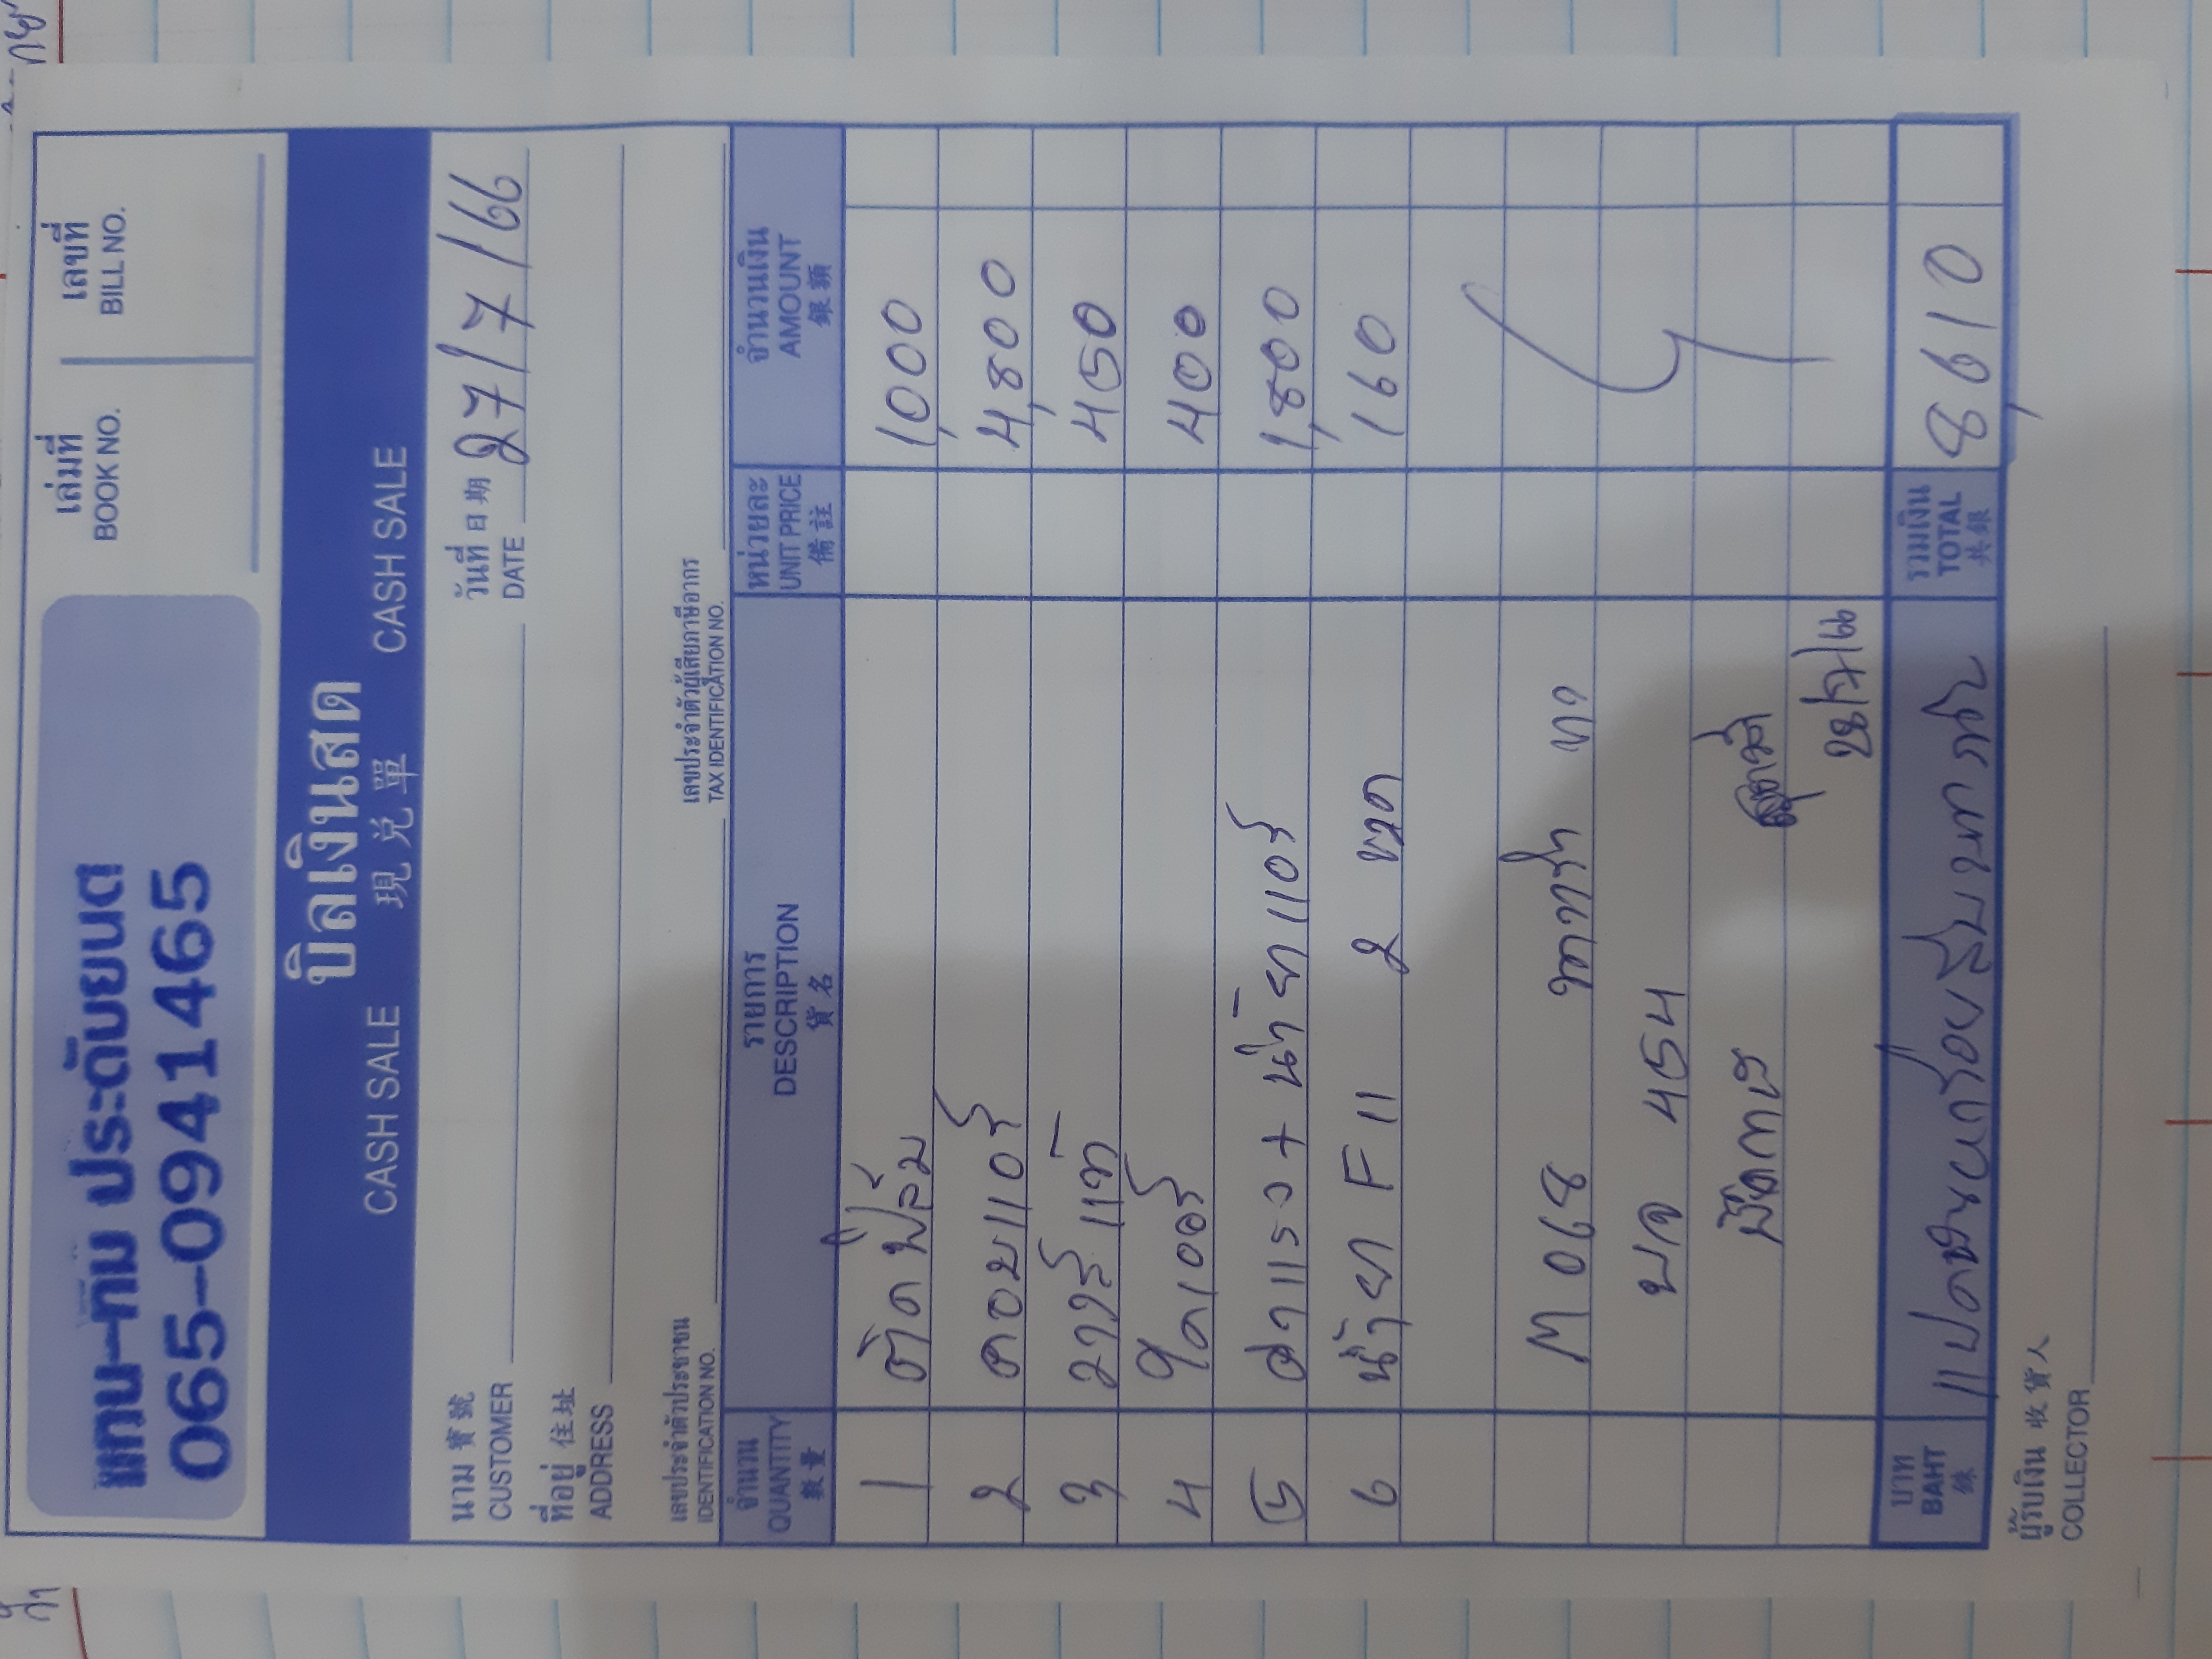 แทน-ทิม ประดับยนต์
065-0941465
เล่มที่
BOOK NO.
เลขที่
BILL NO.
บิลเงินสด
CASH SALE 現兌單 CASH SALE
นาม寶號
CUSTOMER
วันที่日期
DATE 27/7/66
ที่อยู่住址
ADDRESS
เลขประจำตัวประชาชน
IDENTIFICATION NO.
เลขประจำตัวผู้เสียภาษีอากร
TAX IDENTIFICATION NO.
จำนวน รายการ หน่วยละ จำนวนเงิน
QUANTITY DESCRIPTION UNIT PRICE AMOUNT
數量 貨名 備註 銀額
1 ติดฟิล์ม 1,000
2 คอยแอร์ 4,800
3 วาล์วแท้ 450
4 ไดเออร์ 400
5 ค่าแรง + น้ำยาแอร์ 1,800
6 น้ำยา F11 2 ขวด 160
M 068
บจ 454
28/7/66
บาท
BAHT
銖
รวมเงิน
TOTAL
共銀
แปดพันหกร้อยสิบบาทถ้วน
8,610
ผู้รับเงิน 收貨人
COLLECTOR